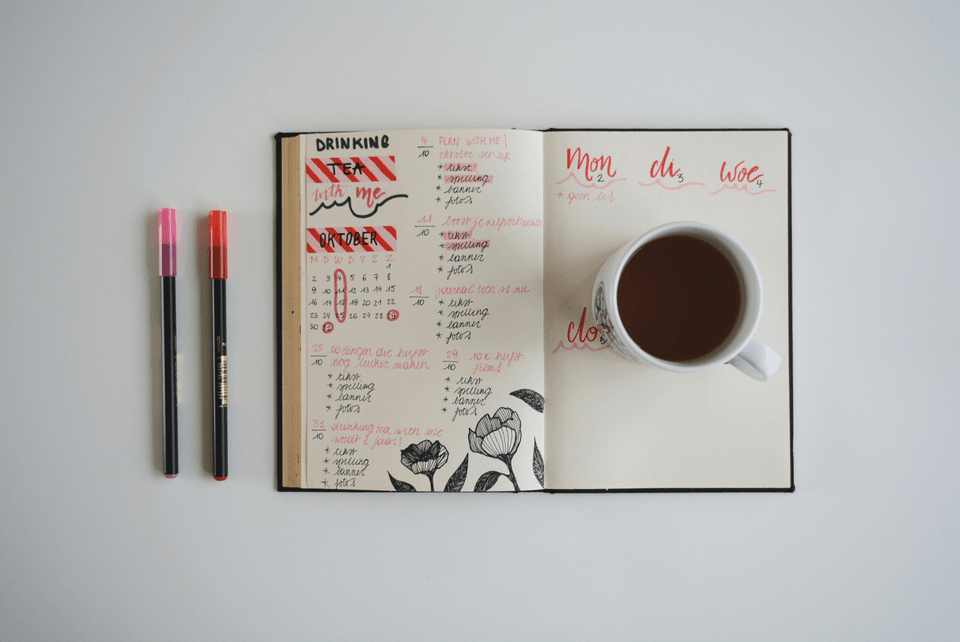 DRINKING
TEA
with me
OKTOBER
M D W D V Z Z
1
2 3 4 5 6 7 8
9 10 11 12 13 14 15
16 17 18 19 20 21 22
23 24 25 26 27 28 29
30 31
4/10 PLAN WITH ME!
oktober set up
* tekst
* spelling
* banner
* foto's
11/10 boost je
* tekst
* spelling
* banner
* foto's
18/10 journal
* tekst
* spelling
* banner
* foto's
25/10 20 dingen die herfst
nog leuker maken
* tekst
* spelling
* banner
* foto's
29/10 10x herfst
films
* tekst
* spelling
* banner
* foto's
31/10 drinking tea with me
wordt 2 jaar!
* tekst
* spelling
* banner
* foto's
Mon 2
* geen les
di 3
woe 4
do 5